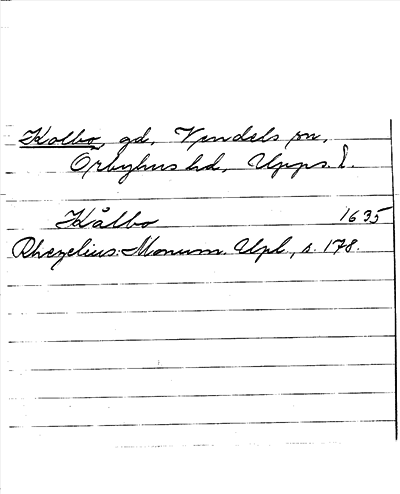 Kolbo, gd, Vendels sn,
Örbyhus hd, Upps. l.
Kålbo 1635
Rhezelius: Monum. Upl., s. 178.